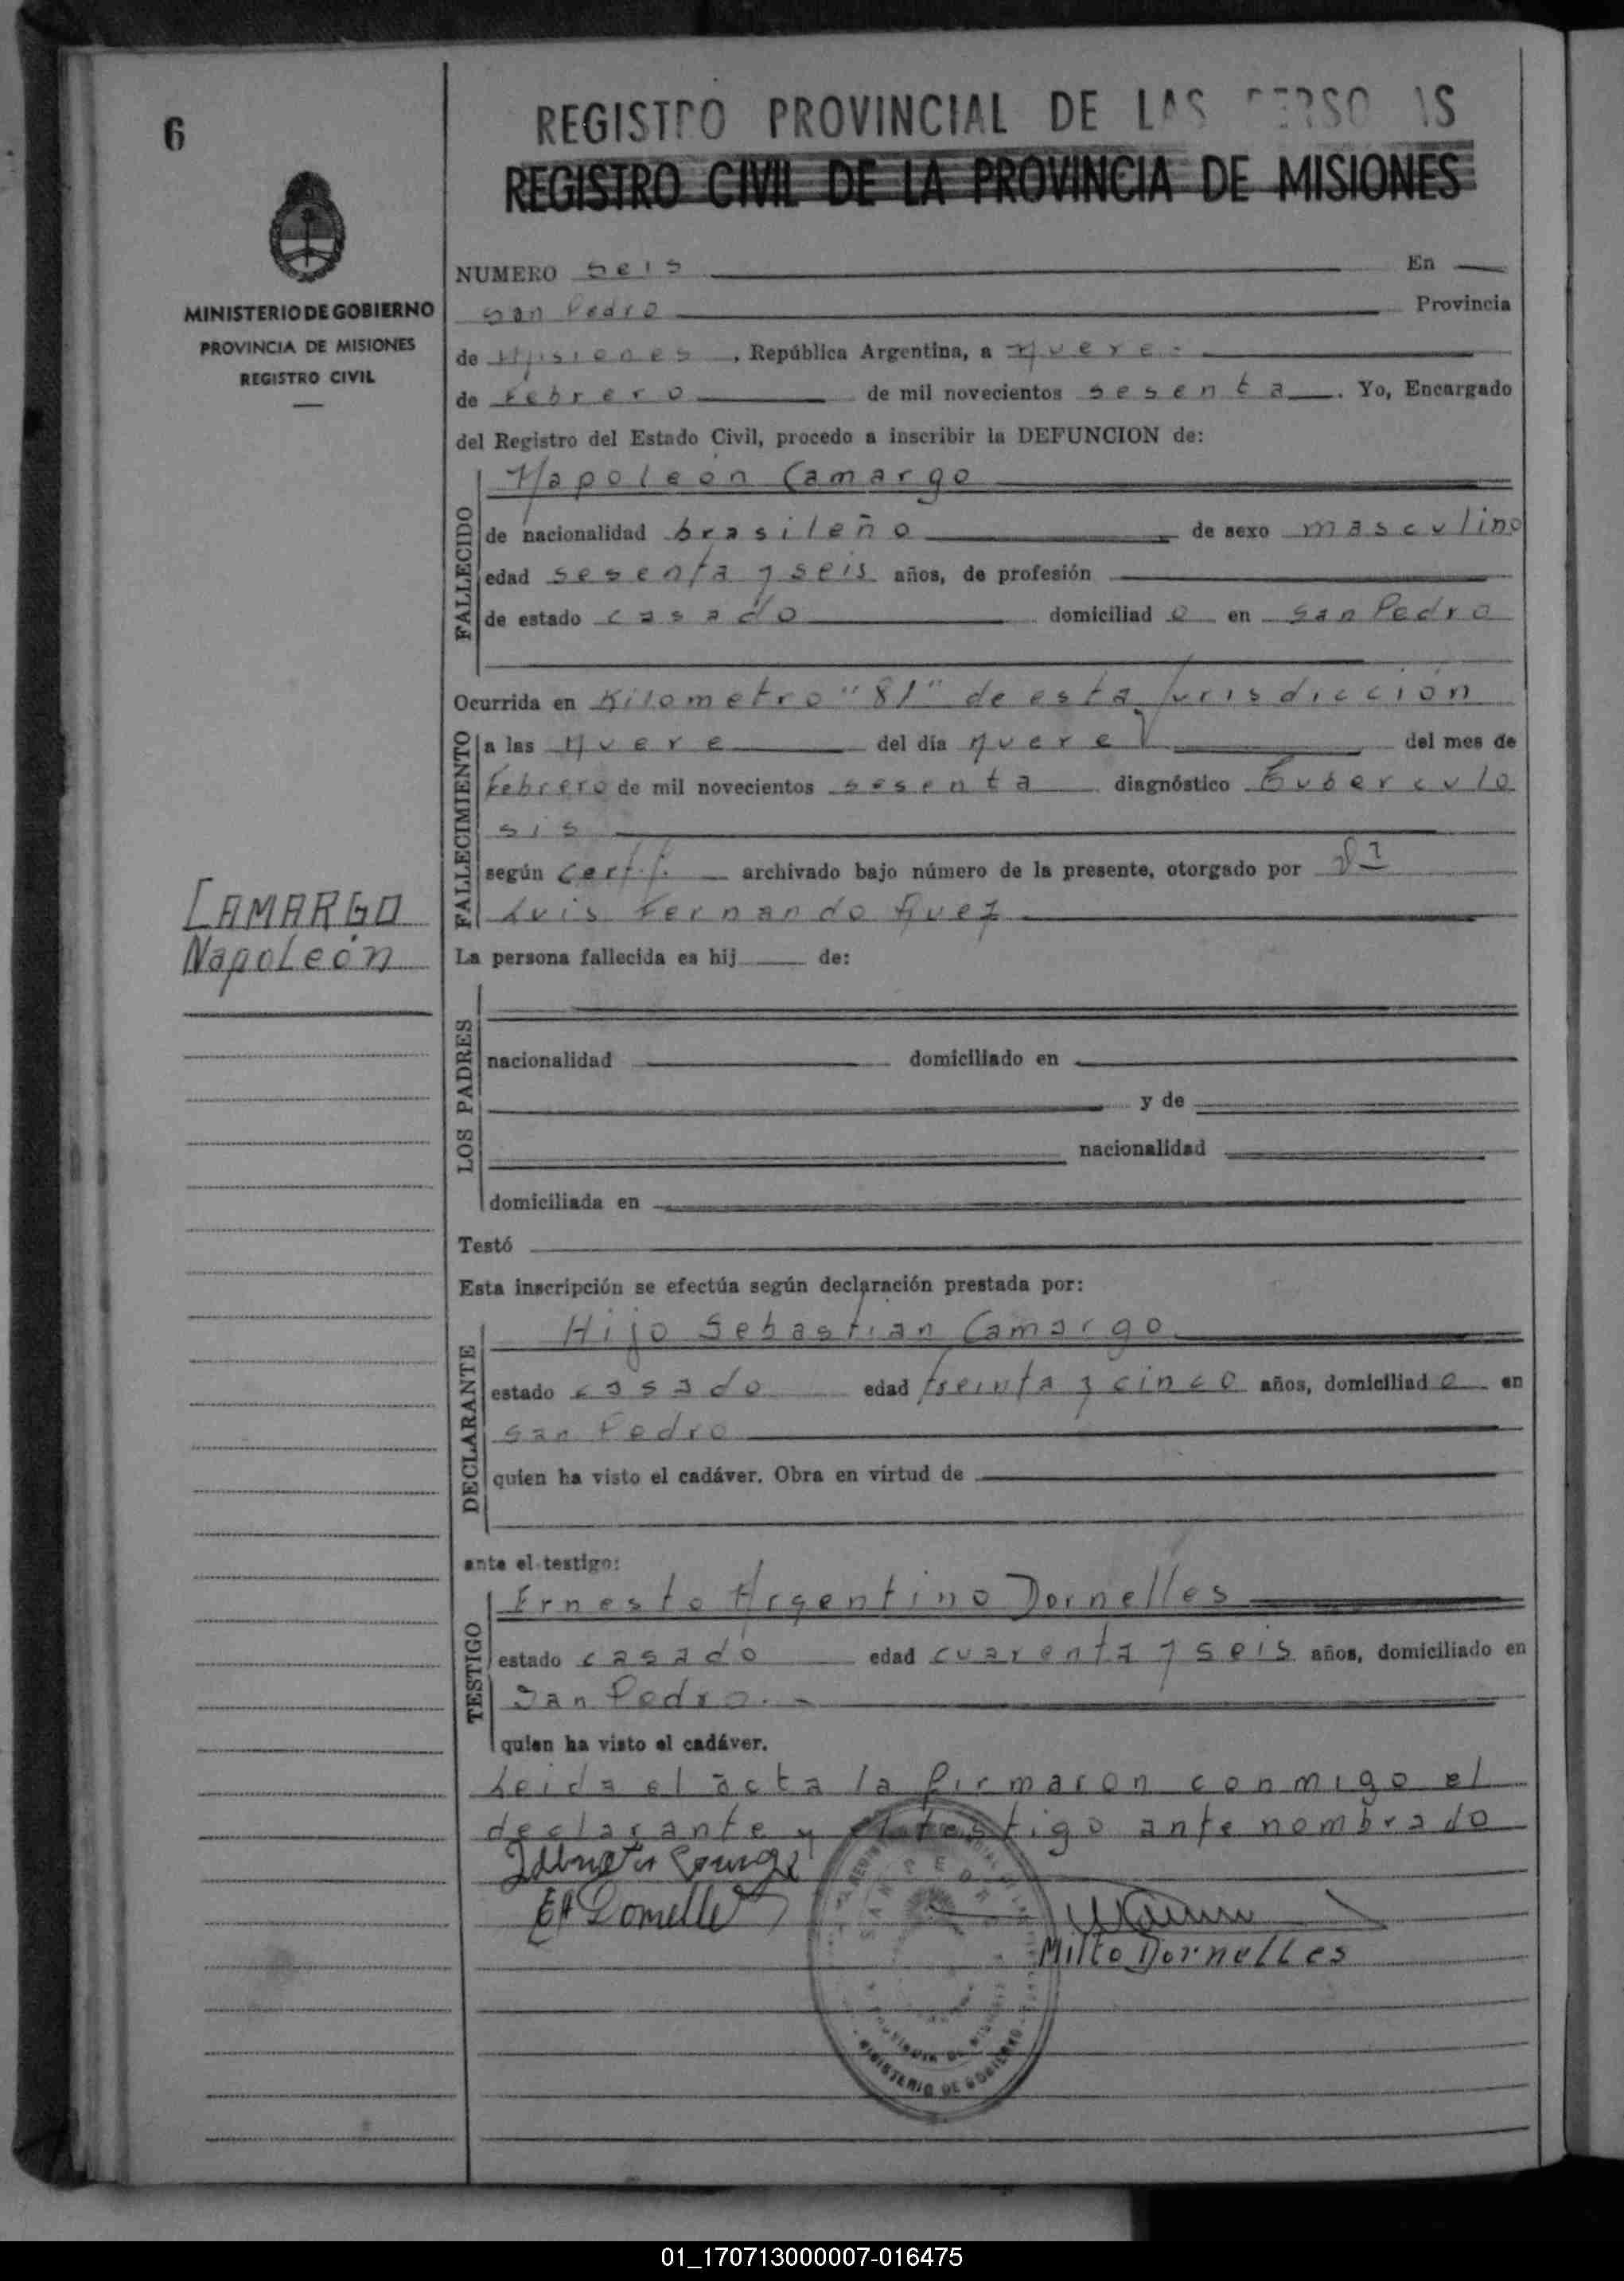 6
REGISTRO PROVINCIAL DE LAS PERSO AS
REGISTRO CIVIL DE LA PROVINCIA DE MISIONES
MINISTERIO DE GOBIERNO
PROVINCIA DE MISIONES
REGISTRO CIVIL
NUMERO seis En
San Pedro Provincia
de Misiones, República Argentina, a nueve
de Febrero de mil novecientos sesenta. Yo, Encargado
del Registro del Estado Civil, procedo a inscribir la DEFUNCION de:
FALLECIDO
Napoleón Camargo
de nacionalidad brasileño de sexo masculino
edad sesenta y seis años, de profesión
de estado casado domiciliado en San Pedro
Ocurrida en Kilometro "81" de esta jurisdicción
FALLECIMIENTO
a las nueve del día nueve del mes de
Febrero de mil novecientos sesenta diagnóstico Tuberculo
sis
según cert. archivado bajo número de la presente, otorgado por
Luis Fernando
CAMARGO
Napoleón
La persona fallecida es hij de:
LOS PADRES
nacionalidad domiciliado en
y de
nacionalidad
domiciliada en
Testó
Esta inscripción se efectúa según declaración prestada por:
DECLARANTE
Hijo Sebastian Camargo
estado casado edad treinta y cinco años, domiciliado en
San Pedro
quien ha visto el cadáver. Obra en virtud de
ante el testigo:
TESTIGO
Ernesto Argentino Dornelles
estado casado edad cuarenta y seis años, domiciliado en
San Pedro.-
quien ha visto el cadáver.
Leida el acta la firmaron conmigo el
declarante y el testigo ante nombrado
EA Dornelles
Milto Dornelles
SAN PEDRO
PROVINCIA DE MISIONES
MINISTERIO DE GOBIERNO
01_170713000007-016475